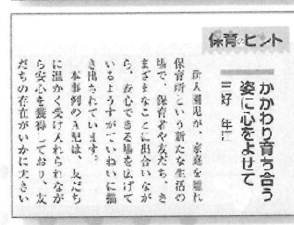 保育のヒント
かかわり育ち合う
姿に心をよせて
三好 年江
新入園児が、家庭を離れ
保育所という新たな生活の
場で、保育者や友だち、さ
まざまなことに出合いなが
ら、安心できる場を広げて
いるようすがていねいに描
き出されています。
本事例のA児は、友だち
に温かく受け入れられなが
ら安心を獲得しており、友
だちの存在がいかに大きい